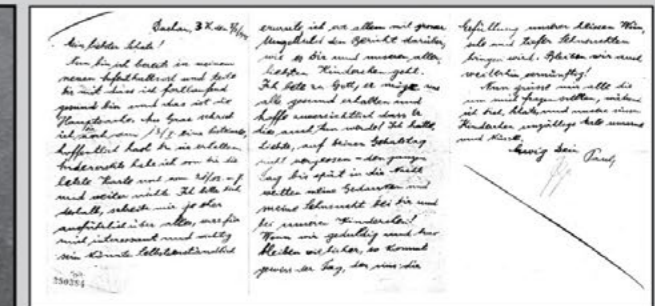 Dachau, 3 K den
Mein liebster Schatz!
Nun bin ich bereits in meinem
neuen Aufenthaltsort und teile
dir mit dass ich fortlaufend
gesund bin und das ist die
Hauptsache. Aus Graz schrieb
ich noch am eine
hoffentlich hast du sie erhalten.
habe ich von dir die
letzte Karte und vom
und weiter nichts. Ich bitte dich
deshalb, schreibe mir ja aber
ausführlich über alles, was für
mich interessant und wichtig
sein könnte. Selbstverständlich
250254
erwarte ich vor allem mit grosser
Ungeduld den Bericht darüber,
wie es dir und unseren aller-
liebsten Kinderchen geht.
Ich bitte zu Gott, er möge uns
alle gesund erhalten und
hoffe zuversichtlich dass er
dies auch tun werde! Ich hatte,
liebste, auf deinen Geburtstag
nicht vergessen – den ganzen
Tag bis spät in die Nacht
meine Gedanken und
meine Sehnsucht bei dir und
bei unseren Kinderchen!
Wenn wir geduldig und
bleiben wie bisher, so kommt
gewiss der Tag, der uns die
Erfüllung unserer Wün-
sche und tiefer Sehnsuchten
bringen wird. Bleiben wir auch
weiterhin vernünftig!
Nun grüsse mir alle die
um mich fragen sollten, während
ich dich, und unsere süssen
Kinderchen unzählige Male umarme
und küsse.
Ewig Dein Paul